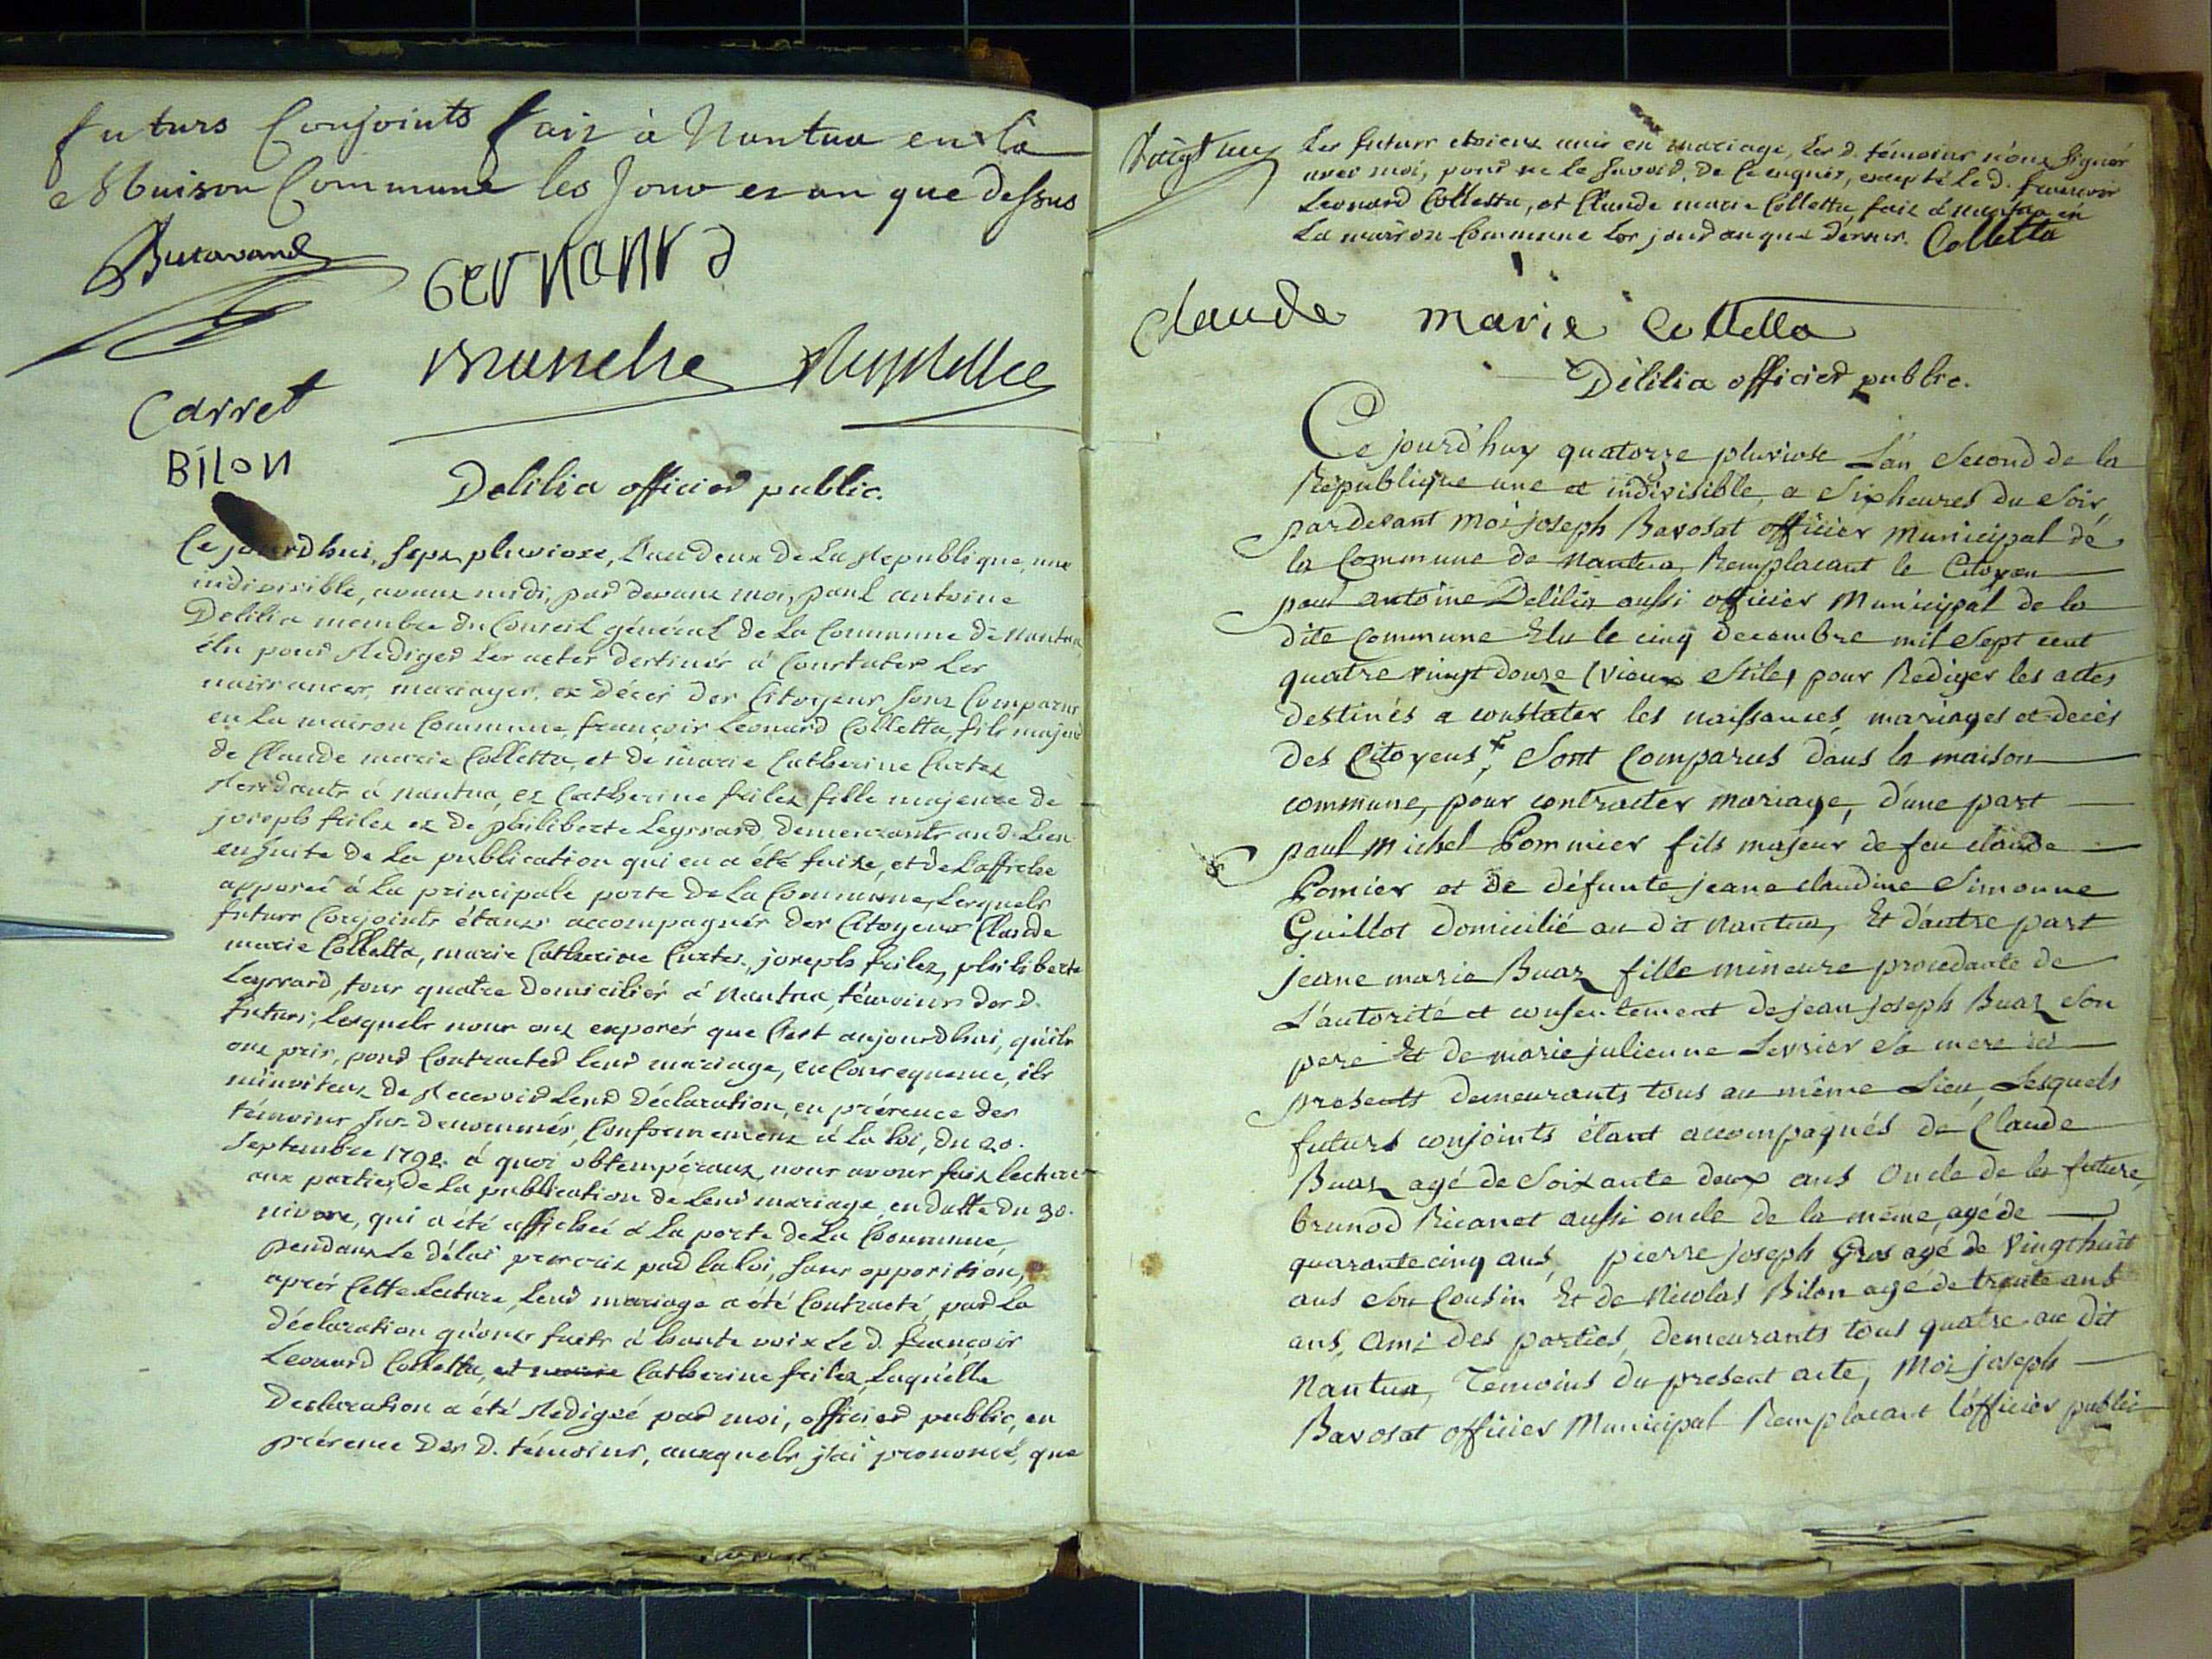 futurs Conjoints fait à Nantua en la
Maison Commune les Jour et an que dessus
Butavand
Gernanrd
Carret
BilON
Delilia officier public.
Ce jourdhui, sept pluviose, L'an deux de La Republique, une
indivisible, avant midi, par devant moi, paul antoine
Delilia membre du Conseil général de La Commune de Nantua
élu pour Rediger Les actes destinés à Constater Les
naissances, mariages, et décés des Citoyens sont Comparus
en La maison Commune, françois Leonard Colletta, fils majeur
de Claude marie Colletta, et de marie Catherine Curtet
Residants à nantua, et Catherine friley fille majeure de
joseph friley et de philiberte Leyssard demeurants aud. Lieu
ensuite de La publication qui en a été faite, et de L'affiche
apposeé à La principale porte de La Commune, Lesquels
futurs Conjoints étants accompagnés des Citoyens Claude
marie Colletta, marie Catherine Curtet, joseph friley, philiberte
Leyssard, tous quatre domiciliés à Nantua, témoins des d.
futurs, Lesquels nous ont exposés que C'est aujourdhui, qu'ils
ont pris, pour Contracter leur mariage, en Consequence, ils
m'invitent de Recevoir Leur déclaration, en présence des
témoins sus-denommés, Conformement à La loi, du 20.
Septembre 1792. à quoi obtempérant, nous avons fait lecture
aux parties, de La publication de Leur mariage en datte du 30.
nivose, qui a été affichée à La porte de La Commune,
pendant Le délai prescrit par la loi, sans opposition,
aprés Cette Lecture, Leur mariage a été Contracté, par La
déclaration qu'ont faite à haute voix Le d. françois
Leonard Colletta, et marie Catherine friley, Laquelle
Declaration a été Redigée par moi, officier public, en
présence des d. témoins, auxquels j'ai prononcé, que
Vingt un
Les futurs étoient unis en mariage, Les d. témoins n'ont signés
avec moi, pour ne le savoir, de Ce enquis, excepté Le d. françois
Leonard Colletta, et Claude marie Colletta, fait à nantua en
La maison Commune Les jour an que dessus. Colletta
Claude marie Colletta
Délilia officier public.
Ce jourd'huy quatorze pluviose L'an Second de la
République une et indivisible, a Six heures du Soir,
pardevant moi joseph Bavosat officier Municipal de
la Commune de Nantua, Remplacant le Citoyen
paul antoine Delilia aussi officier Municipal de la
dite Commune Elu le cinq Decembre mil Sept cent
quatre vingt douze (vieux Stile) pour Rediger les actes
destinés a constater les naissances, mariages et decès
des Citoyens, Sont Comparus dans la maison
commune, pour contracter mariage, d'une part
paul Michel Pommier fils majeur de feu claude
Pomier et de défunte jeane claudine Simonne
Guillot domicilié au dit Nantua, Et d'autre part
jeane marie Buaz fille mineure procedante de
L'autorité et consentement de jean joseph Buaz Son
pere Et de marie julienne Levrier Sa mere ici
presents demeurants tous au même Lieu, Lesquels
futurs conjoints étant accompagnés de Claude
Buaz agé de Soixante deux ans Oncle de la future,
brunod Ricanet aussi oncle de la même, agé de
quarante cinq ans, pierre joseph Gros agé de Vingthuit
ans Son Cousin Et de Nicolas Bilon agé de trente ans
ans, Ami des parties, demeurants tous quatre au dit
Nantua, Témoins du present acte, Moi joseph
Bavosat officier Municipal Remplacant l'officier public